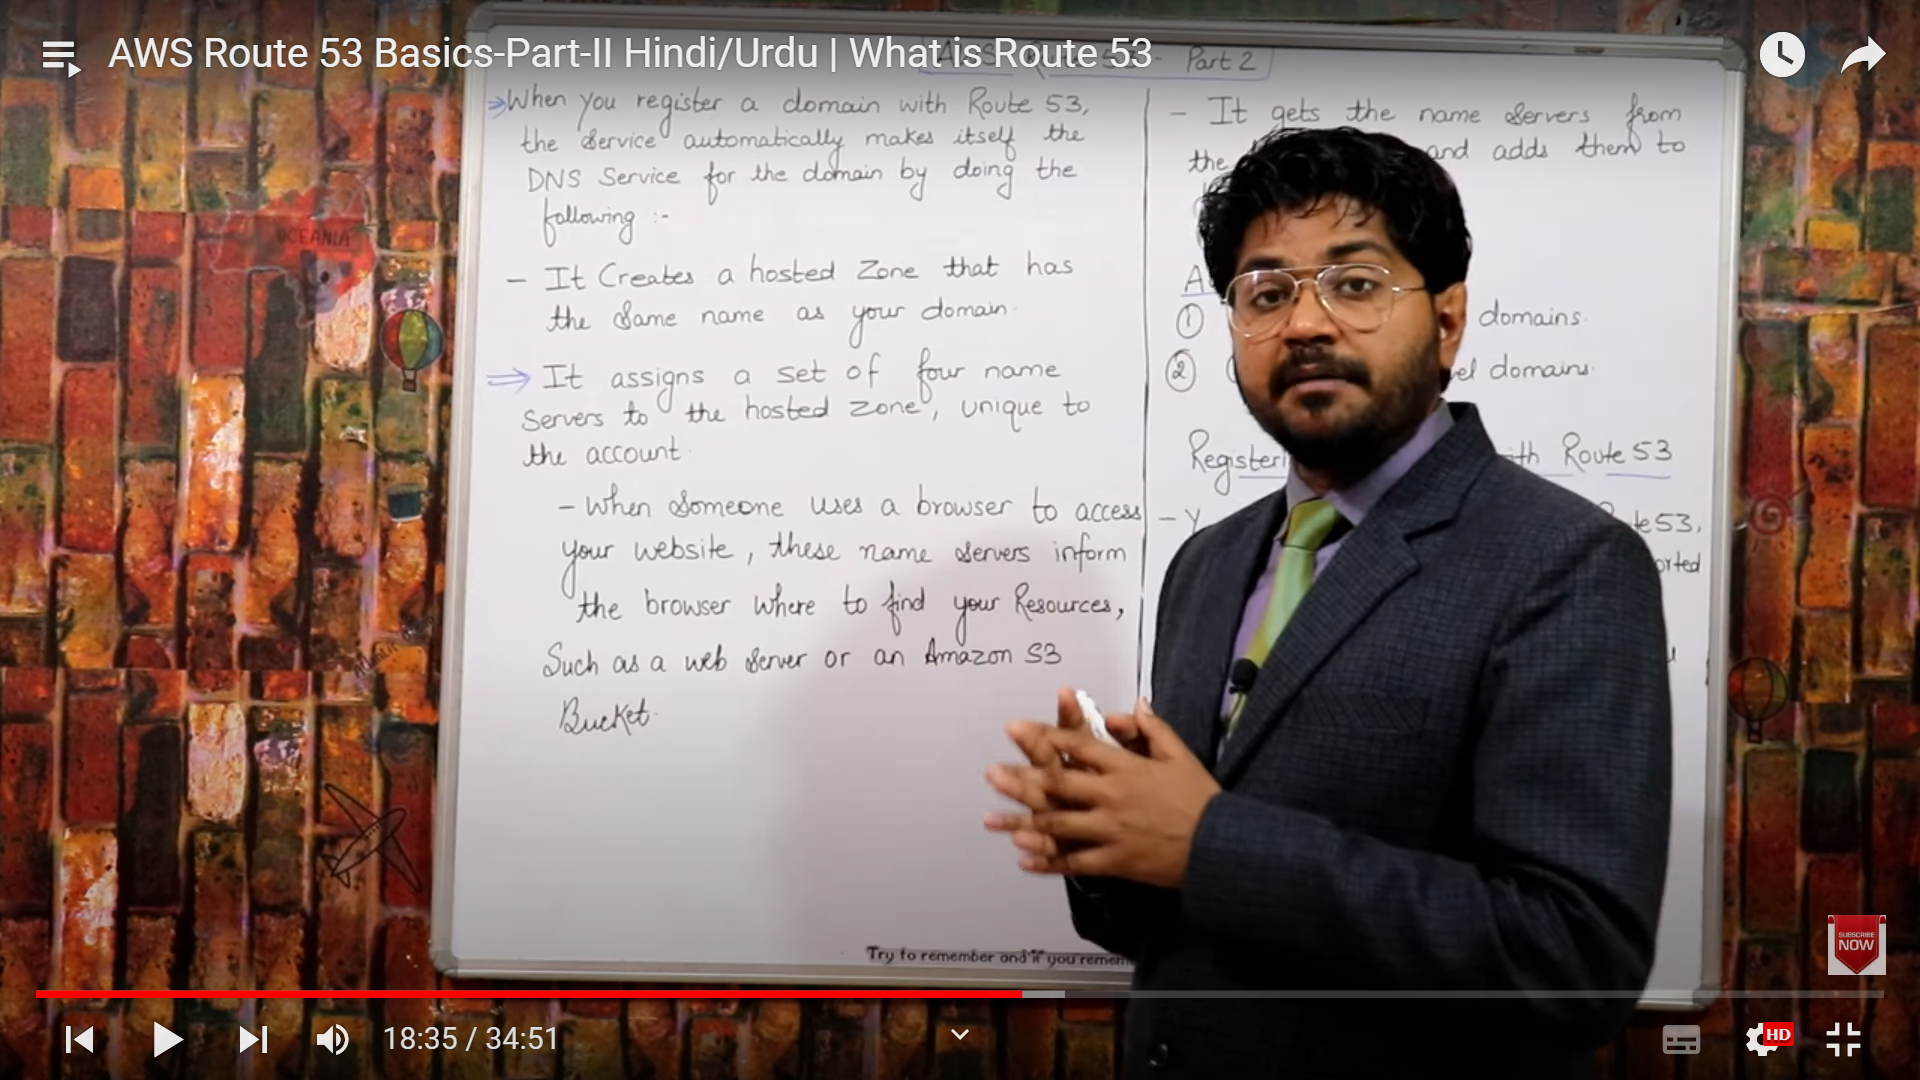 AWS Route 53 Basics-Part-II Hindi/Urdu | What is Route 53
Part 2
When you register a domain with Route 53,
the Service automatically makes itself the
DNS Service for the domain by doing the
following :-
- It Creates a hosted Zone that has
the Same name as your domain.
⇒ It assigns a set of four name
Servers to the hosted zone, unique to
the account.
- When Someone uses a browser to access
your website, these name servers inform
the browser where to find your Resources,
Such as a web Server or an Amazon S3
Bucket.
- It gets the name Servers from
the and adds them to
①  domains.
② domains.
with Route 53
OCEANIA
Try to remember and if you
SUBSCRIBE
NOW
18:35 / 34:51
HD